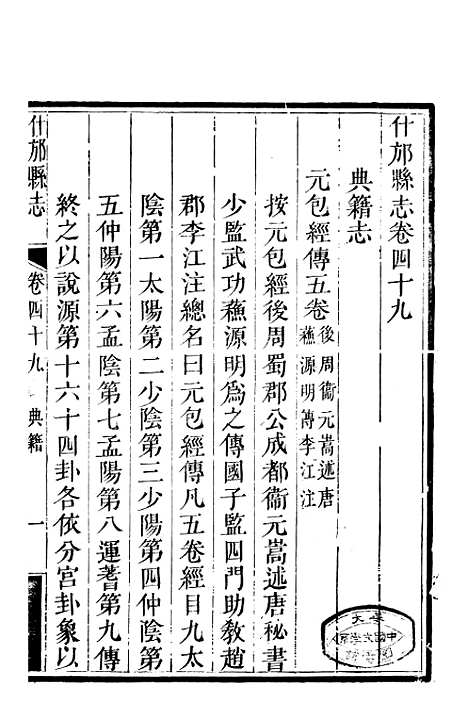 什邡縣志卷四十九
典籍志
元包經傳五卷後周衞元嵩述唐
蘇源明傳李江注
按元包經後周蜀郡公成都衞元嵩述唐秘書
少監武功蘇源明爲之傳國子監四門助敎趙
郡李江注總名曰元包經傳凡五卷經目九太
陰第一太陽第二少陰第三少陽第四仲陰第
五仲陽第六孟陰第七孟陽第八運蓍第九傳
終之以說源第十六十四卦各依分宮卦象以
什邡縣志
卷四十九
典籍
一